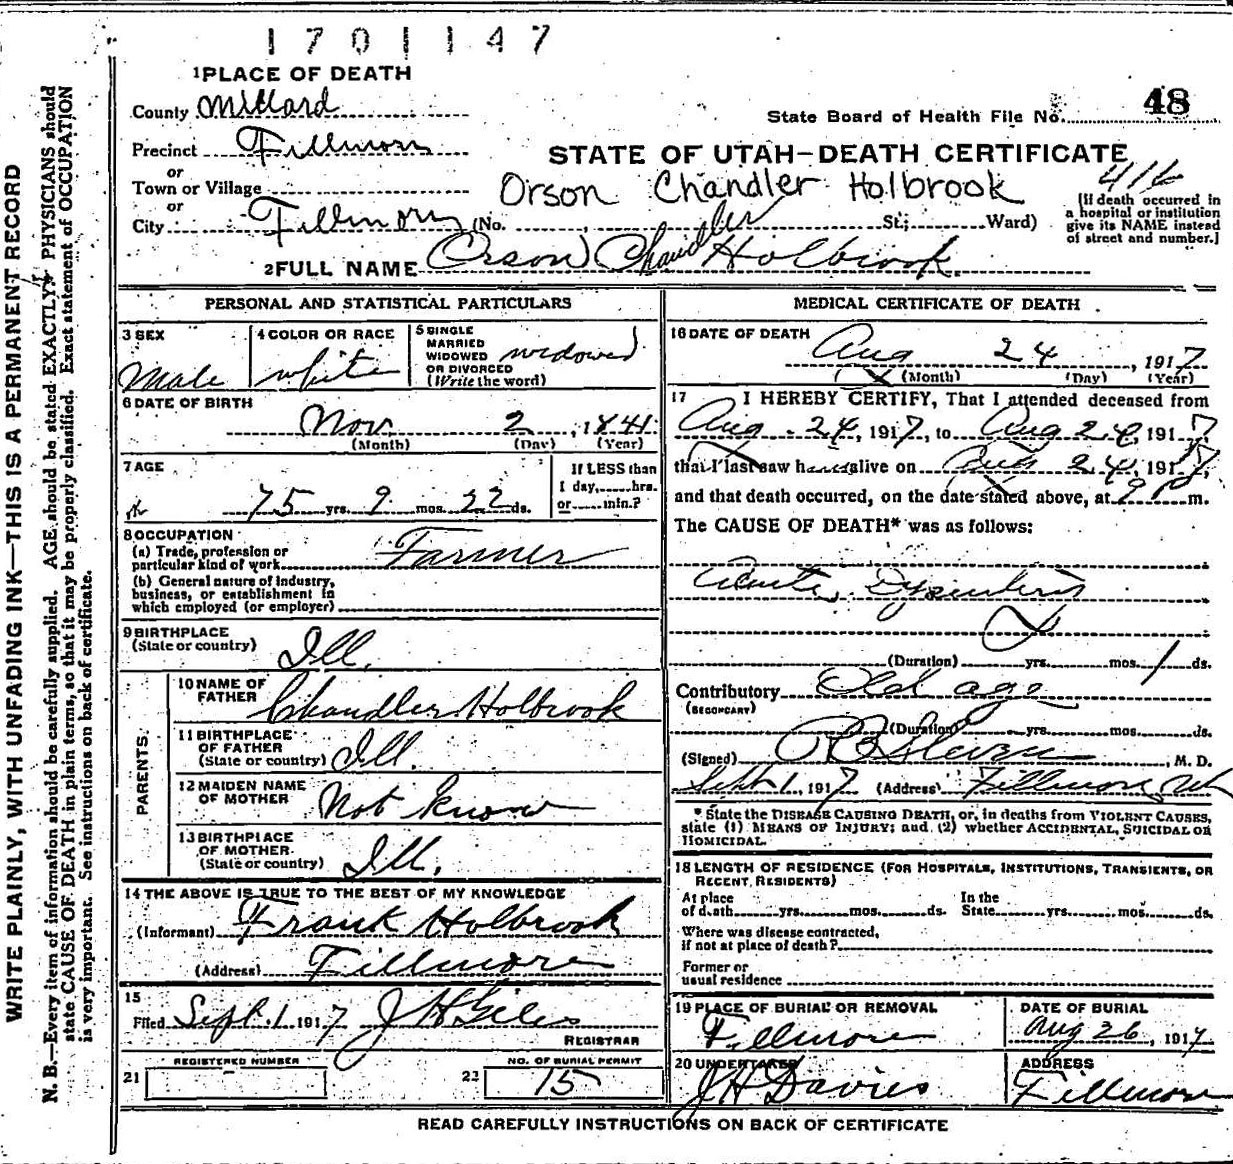 1701147
1 PLACE OF DEATH
County Millard
State Board of Health File No. 48
Precinct Fillmore
STATE OF UTAH—DEATH CERTIFICATE
or
Town or Village
Orson Chandler Holbrook
416
or
City Fillmore (No. , St.; Ward)
(If death occurred in
a hospital or institution
give its NAME instead
of street and number.]
2 FULL NAME Orson Chandler Holbrook
PERSONAL AND STATISTICAL PARTICULARS
3 SEX
Male
4 COLOR OR RACE
white
5 SINGLE
MARRIED
WIDOWED
OR DIVORCED
(Write the word)
widowed
6 DATE OF BIRTH
Nov. 2, 1841
(Month) (Day) (Year)
7 AGE
75 yrs. 9 mos. 22 ds.
If LESS than
1 day, hrs.
or min.?
8 OCCUPATION
(a) Trade, profession or
particular kind of work Farmer
(b) General nature of industry,
business, or establishment in
which employed (or employer)
9 BIRTHPLACE
(State or country) Ill.
PARENTS
10 NAME OF
FATHER Chandler Holbrook
11 BIRTHPLACE
OF FATHER
(State or country) Ill.
12 MAIDEN NAME
OF MOTHER Not know
13 BIRTHPLACE
OF MOTHER
(State or country) Ill.
14 THE ABOVE IS TRUE TO THE BEST OF MY KNOWLEDGE
(Informant) Frank Holbrook
(Address) Fillmore
15
Filed Sept. 1 1917 J H Giles
REGISTRAR
REGISTERED NUMBER
21
NO. OF BURIAL PERMIT
22 15
MEDICAL CERTIFICATE OF DEATH
16 DATE OF DEATH
Aug 24, 1917
(Month) (Day) (Year)
17 I HEREBY CERTIFY, That I attended deceased from
Aug. 24, 1917, to Aug 24, 1917,
that I last saw h alive on Aug 24, 1917,
and that death occurred, on the date stated above, at 9 P m.
The CAUSE OF DEATH* was as follows:
Acute Dysentery
(Duration) yrs. mos. 1 ds.
Contributory Old age
(SECONDARY)
(Duration) yrs. mos. ds.
(Signed) , M. D.
Sept 1, 1917 (Address) Fillmore, Ut
* State the DISEASE CAUSING DEATH, or, in deaths from VIOLENT CAUSES,
state (1) MEANS OF INJURY; and (2) whether ACCIDENTAL, SUICIDAL OR
HOMICIDAL.
18 LENGTH OF RESIDENCE (FOR HOSPITALS, INSTITUTIONS, TRANSIENTS, OR
RECENT RESIDENTS)
At place In the
of death yrs. mos. ds. State yrs. mos. ds.
Where was disease contracted,
if not at place of death?
Former or
usual residence
19 PLACE OF BURIAL OR REMOVAL
Fillmore
DATE OF BURIAL
Aug 26, 1917
20 UNDERTAKER
J H Davies
ADDRESS
Fillmore
READ CAREFULLY INSTRUCTIONS ON BACK OF CERTIFICATE
WRITE PLAINLY, WITH UNFADING INK—THIS IS A PERMANENT RECORD
N. B.—Every item of information should be carefully supplied. AGE should be stated EXACTLY. PHYSICIANS should
state CAUSE OF DEATH in plain terms, so that it may be properly classified. Exact statement of OCCUPATION
is very important. See instructions on back of certificate.